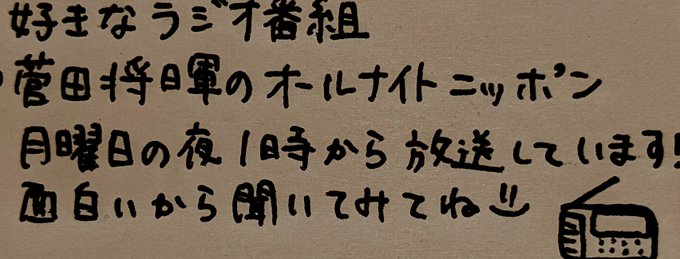 好きなラジオ番組
菅田将暉のオールナイトニッポン
月曜日の夜1時から放送しています!
面白いから聞いてみてね